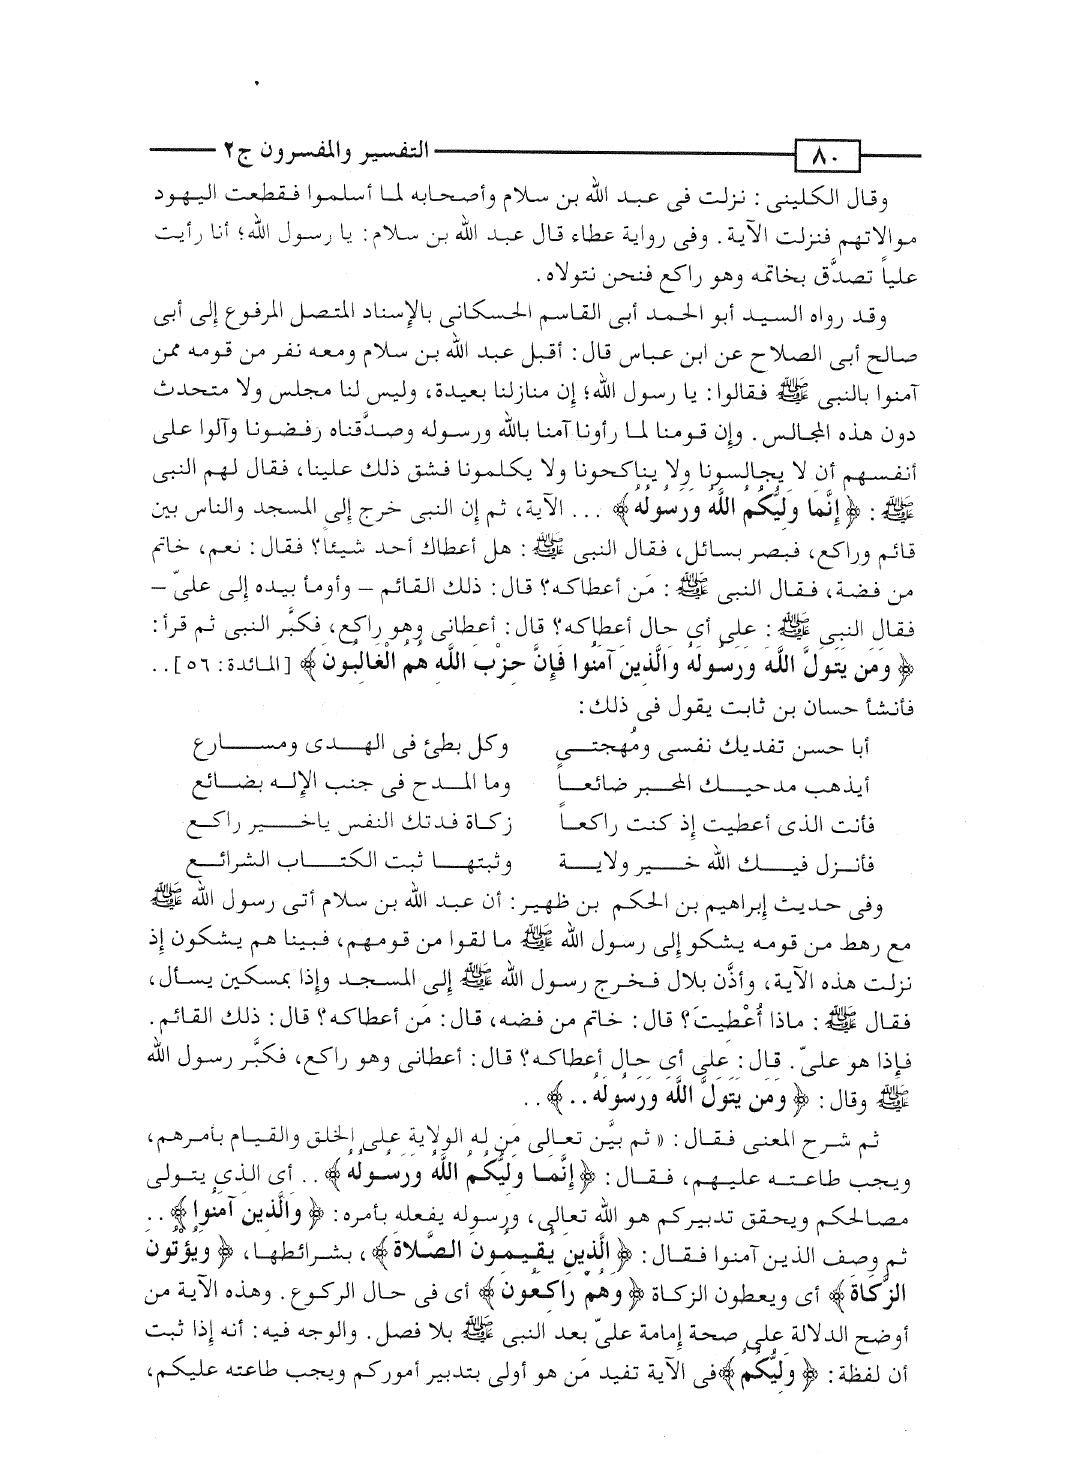 ٨٠ التفسير والمفسرون ج٢
وقال الكلينى : نزلت فى عبد الله بن سلام وأصحابه لما أسلموا فقطعت اليهود
موالاتهم فنزلت الآية. وفى رواية عطاء قال عبد الله بن سلام: يا رسول الله؛ أنا رأيت
علياً تصدَّق بخاتمه وهو راكع فنحن نتولاه.
وقد رواه السيد أبو الحمد أبى القاسم الحسكانى بالإسناد المتصل المرفوع إلى أبى
صالح أبى الصلاح عن ابن عباس قال: أقبل عبد الله بن سلام ومعه نفر من قومه ممن
آمنوا بالنبى ﷺ فقالوا: يا رسول الله؛ إن منازلنا بعيدة، وليس لنا مجلس ولا متحدث
دون هذه المجالس. وإن قومنا لما رأونا آمنا بالله ورسوله وصدَّقناه رفضونا وآلوا على
أنفسهم أن لا يجالسونا ولا يناكحونا ولا يكلمونا فشق ذلك علينا، فقال لهم النبى
ﷺ: ﴿إِنَّمَا وَلِيُّكُمُ اللَّهُ وَرَسُولُهُ﴾ ... الآية، ثم إن النبى خرج إلى المسجد والناس بين
قائم وراكع، فبصر بسائل، فقال النبى ﷺ: هل أعطاك أحد شيئاً؟ فقال: نعم، خاتم
من فضة، فقال النبى ﷺ: مَن أعطاكه؟ قال: ذلك القائم – وأومأ بيده إلى علىّ –
فقال النبى ﷺ: على أى حال أعطاكه؟ قال: أعطانى وهو راكع، فكبَّر النبى ثم قرأ:
﴿وَمَن يَتَوَلَّ اللَّهَ وَرَسُولَهُ وَالَّذِينَ آمَنُوا فَإِنَّ حِزْبَ اللَّهِ هُمُ الْغَالِبُونَ﴾ [المائدة: ٥٦]..
فأنشأ حسان بن ثابت يقول فى ذلك:
أبا حسن تفديك نفسى ومُهجتى وكل بطئ فى الهدى ومسارع
أيذهب مدحيك المحبر ضائعاً وما المدح فى جنب الإله بضائع
فأنت الذى أعطيت إذ كنت راكعاً زكاة فدتك النفس ياخير راكع
فأنزل فيك الله خير ولاية وثبتها ثبت الكتاب الشرائع
وفى حديث إبراهيم بن الحكم بن ظهير: أن عبد الله بن سلام أتى رسول الله ﷺ
مع رهط من قومه يشكو إلى رسول الله ﷺ ما لقوا من قومهم، فبينا هم يشكون إذ
نزلت هذه الآية، وأذَّن بلال فخرج رسول الله ﷺ إلى المسجد وإذا بمسكين يسأل،
فقال ﷺ: ماذا أُعْطِيتَ؟ قال: خاتم من فضه، قال: مَن أعطاكه؟ قال: ذلك القائم.
فإذا هو علىّ. قال: على أى حال أعطاكه؟ قال: أعطانى وهو راكع، فكبَّر رسول الله
ﷺ وقال: ﴿وَمَن يَتَوَلَّ اللَّهَ وَرَسُولَهُ..﴾..
ثم شرح المعنى فقال: « ثم بيَّن تعالى مَن له الولاية على الخلق والقيام بأمرهم،
ويجب طاعته عليهم، فقال: ﴿إِنَّمَا وَلِيُّكُمُ اللَّهُ وَرَسُولُهُ﴾.. أى الذى يتولى
مصالحكم ويحقق تدبيركم هو الله تعالى، ورسوله يفعله بأمره: ﴿وَالَّذِينَ آمَنُوا﴾..
ثم وصف الذين آمنوا فقال: ﴿الَّذِينَ يُقِيمُونَ الصَّلاةَ﴾، بشرائطها، ﴿وَيُؤْتُونَ
الزَّكَاةَ﴾ أى ويعطون الزكاة ﴿وَهُمْ رَاكِعُونَ﴾ أى فى حال الركوع. وهذه الآية من
أوضح الدلالة على صحة إمامة علىّ بعد النبى ﷺ بلا فصل. والوجه فيه: أنه إذا ثبت
أن لفظة: ﴿وَلِيُّكُمُ﴾ فى الآية تفيد مَن هو أولى بتدبير أموركم ويجب طاعته عليكم،